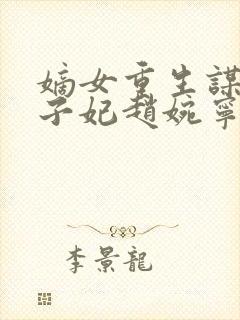 嫡女重生謀
子妃趙婉寧
李景龍